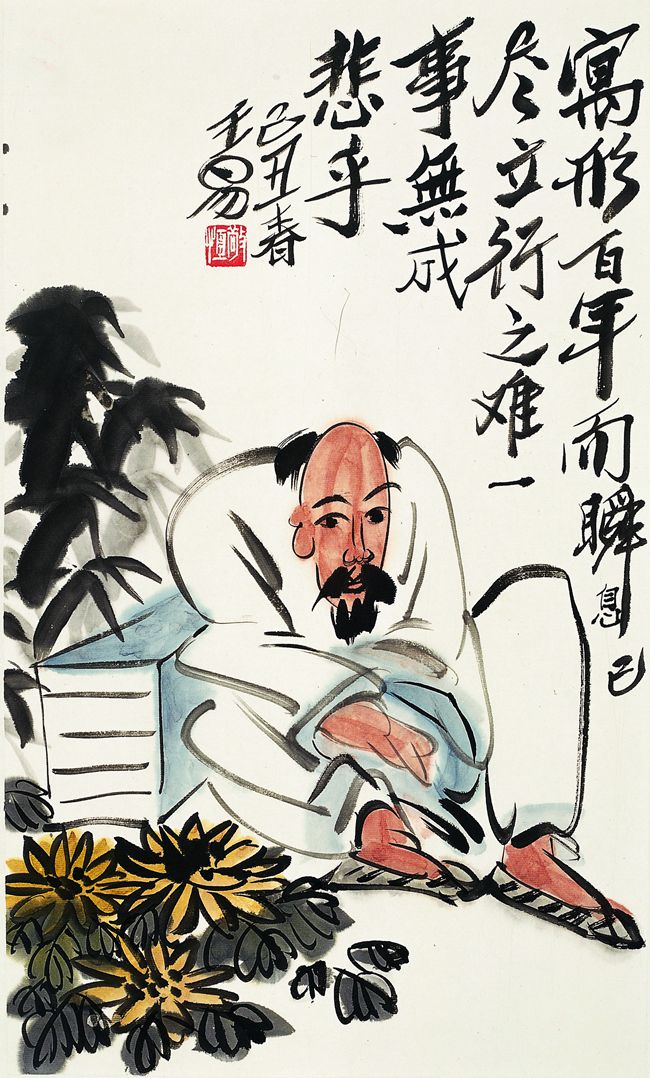 寓形百年而瞬息已
尽立行之难一
事無成
悲乎
己丑春
易